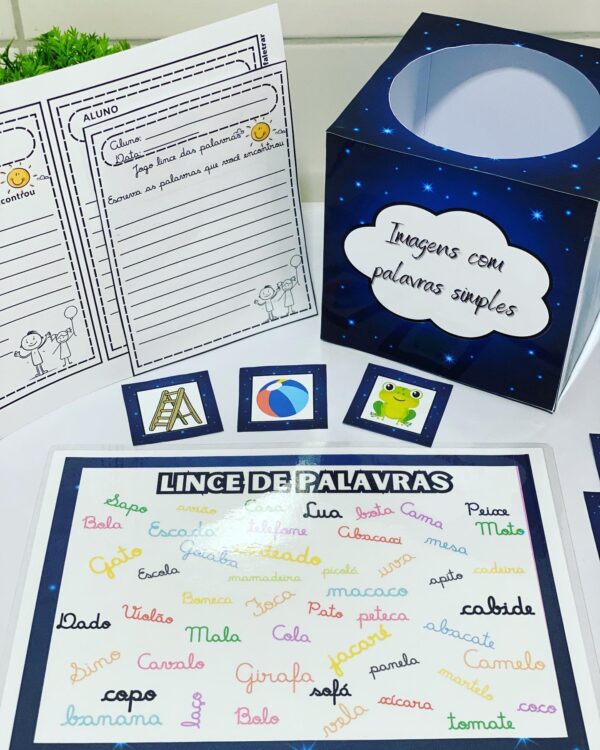 faletrar
ALUNO
Aluno:
Data:
Jogo lince das palavras
Escreva as palavras que você encontrou
controu
Imagens com
palavras simples
LINCE DE PALAVRAS
Sapo avião Casa Lua bota Cama Peixe
Bola Escada telefone Abacaxi mesa Moto
Gato Goiaba uva
Escola mamadeira picolé apito cadeira
Boneca Foca macaco
Dado Violão Pato peteca cabide
Mala Cola jacaré abacate
Sino Cavalo Girafa panela Camelo
copo sofá xícara martelo
banana laço Bolo vela tomate coco